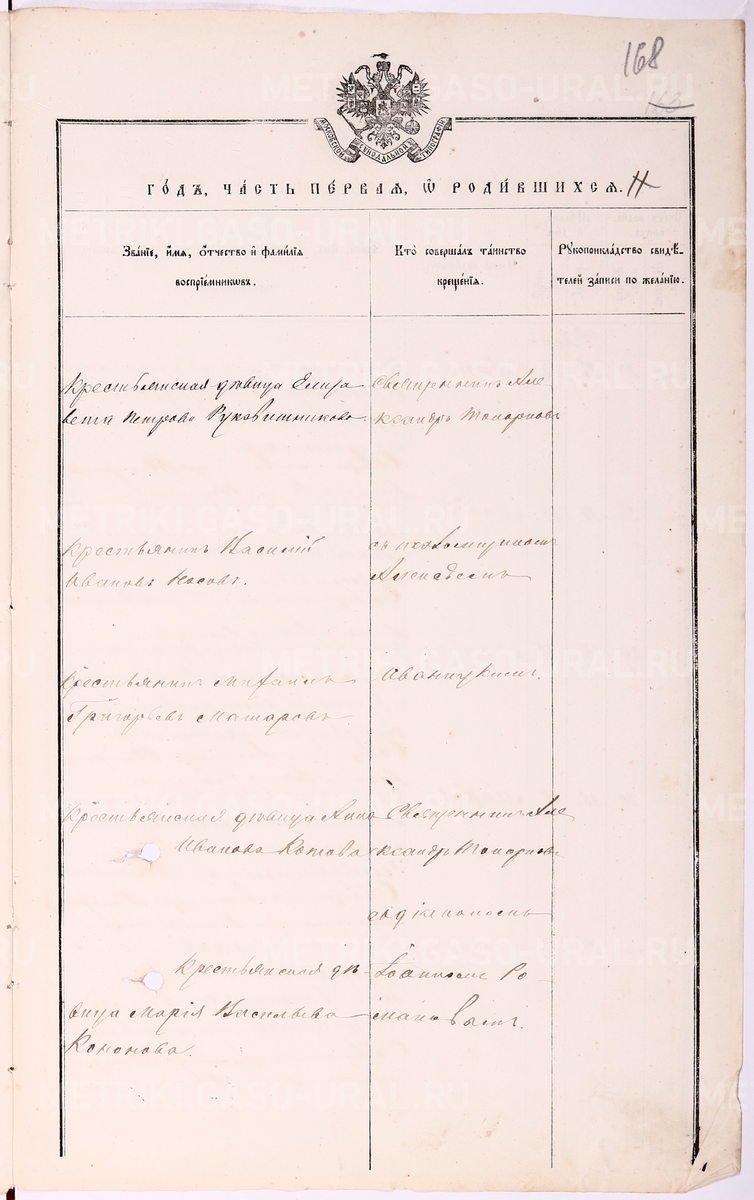 168
163
МОСКОВСКОЙ СѴНОДАЛЬНОЙ ТИПОГРАФІИ
ГО́ДЪ, ЧА́СТЬ ПЕ́РВАЯ, Ѡ҆ РОДИ́ВШИХСЯ.
Зва́нїе, и҆́мѧ, ѻ҆́тчество и҆ фами́лїѧ
воспрїе́мникѡвъ.
Кто̀ соверша́лъ та́инство
креще́нїѧ.
Рꙋкоприкла́дство свидѣ́-
телей за́писи по жела́нїю.
Крестьянская дѣвица Елиза
вета Петрова Рукавишникова
Священникъ Але
ксандръ Топорковъ
Крестьянинъ Василій
Ивановъ Носовъ.
съ псаломщикомъ
Алексѣемъ
Крестьянинъ Михаилъ
Григорьевъ Маторовъ
Иваницкимъ.
Крестьянская дѣвица Анна
Иванова Котова
Священникъ Але
ксандръ Топорковъ
съ
Крестьянская дѣ-
вица Марія Васильева
Кононова.
Іоанномъ Ро-
мановымъ.
METRIKI.GASO-URAL.RU